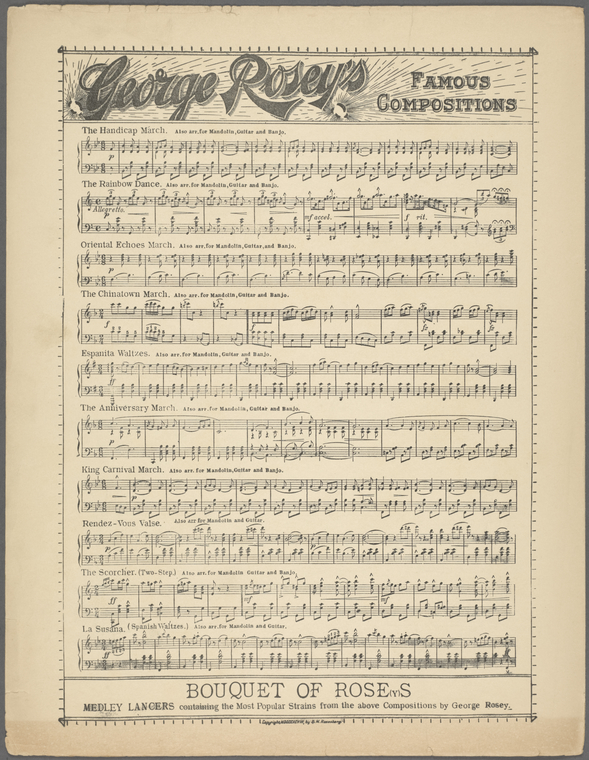 George Rosey's
Famous
Compositions
The Handicap March. Also arr. for Mandolin, Guitar and Banjo.
p
The Rainbow Dance. Also arr. for Mandolin, Guitar and Banjo.
Allegretto.
mf accel. f rit.
Oriental Echoes March. Also arr. for Mandolin, Guitar, and Banjo.
p
The Chinatown March. Also arr. for Mandolin, Guitar and Banjo.
f
Espanita Waltzes. Also arr. for Mandolin, Guitar and Banjo.
ff
The Anniversary March. Also arr. for Mandolin, Guitar and Banjo.
p
King Carnival March. Also arr. for Mandolin, Guitar and Banjo.
p
Rendez-Vous Valse. Also arr for Mandolin and Guitar.
p
The Scorcher. (Two-Step.) Also arr. for Mandolin Guitar and Banjo.
ff mf
La Susana. (Spanish Waltzes.) Also arr. for Mandolin and Guitar.
ff
BOUQUET OF ROSE(Y)S
MEDLEY LANCERS containing the Most Popular Strains from the above Compositions by George Rosey.
Copyright by